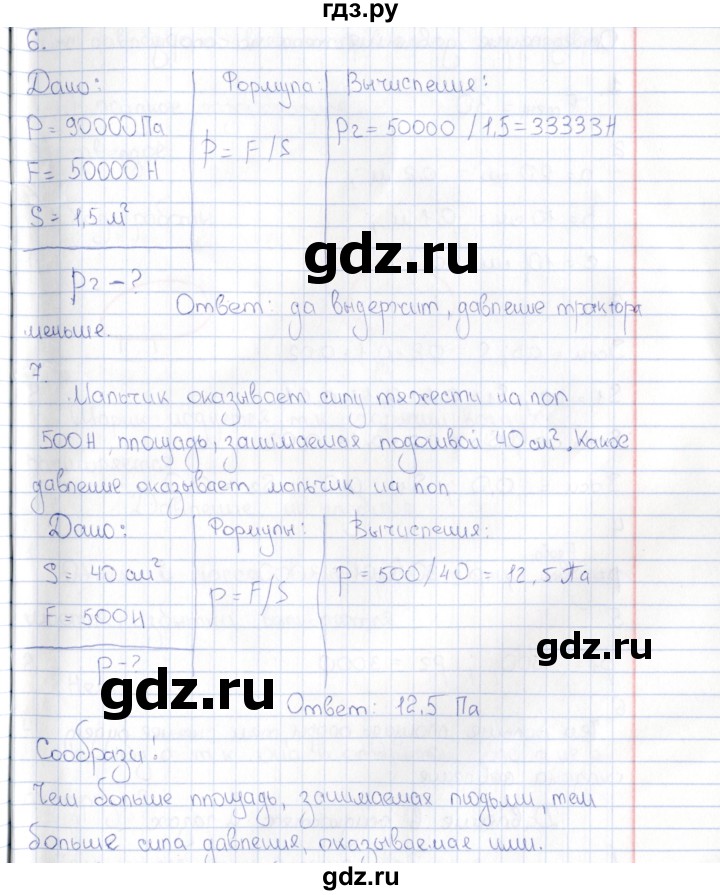 гдз.ру
6.
Дано: Формула: Вычисления:
P = 90000 Па p2 = 50000 / 1,5 = 33333 Н
p = F/S
F = 50000 Н
S = 1,5 м²
gdz.ru
p2 - ?
Ответ: да выдержит, давление трактора
меньше.
7.
Мальчик оказывает силу тяжести на пол
500 Н, площадь, занимаемая подошвой 40 см². Какое
давление оказывает мальчик на пол
Дано: Формулы: Вычисления:
S = 40 см² p = 500/40 = 12,5 Па
p = F/S
F = 500 Н
p - ?
gdz.ru gdz.ru
Ответ: 12,5 Па
Сообрази!
Чем больше площадь, занимаемая людьми, тем
больше сила давления, оказываемая ими.
gdz.ru